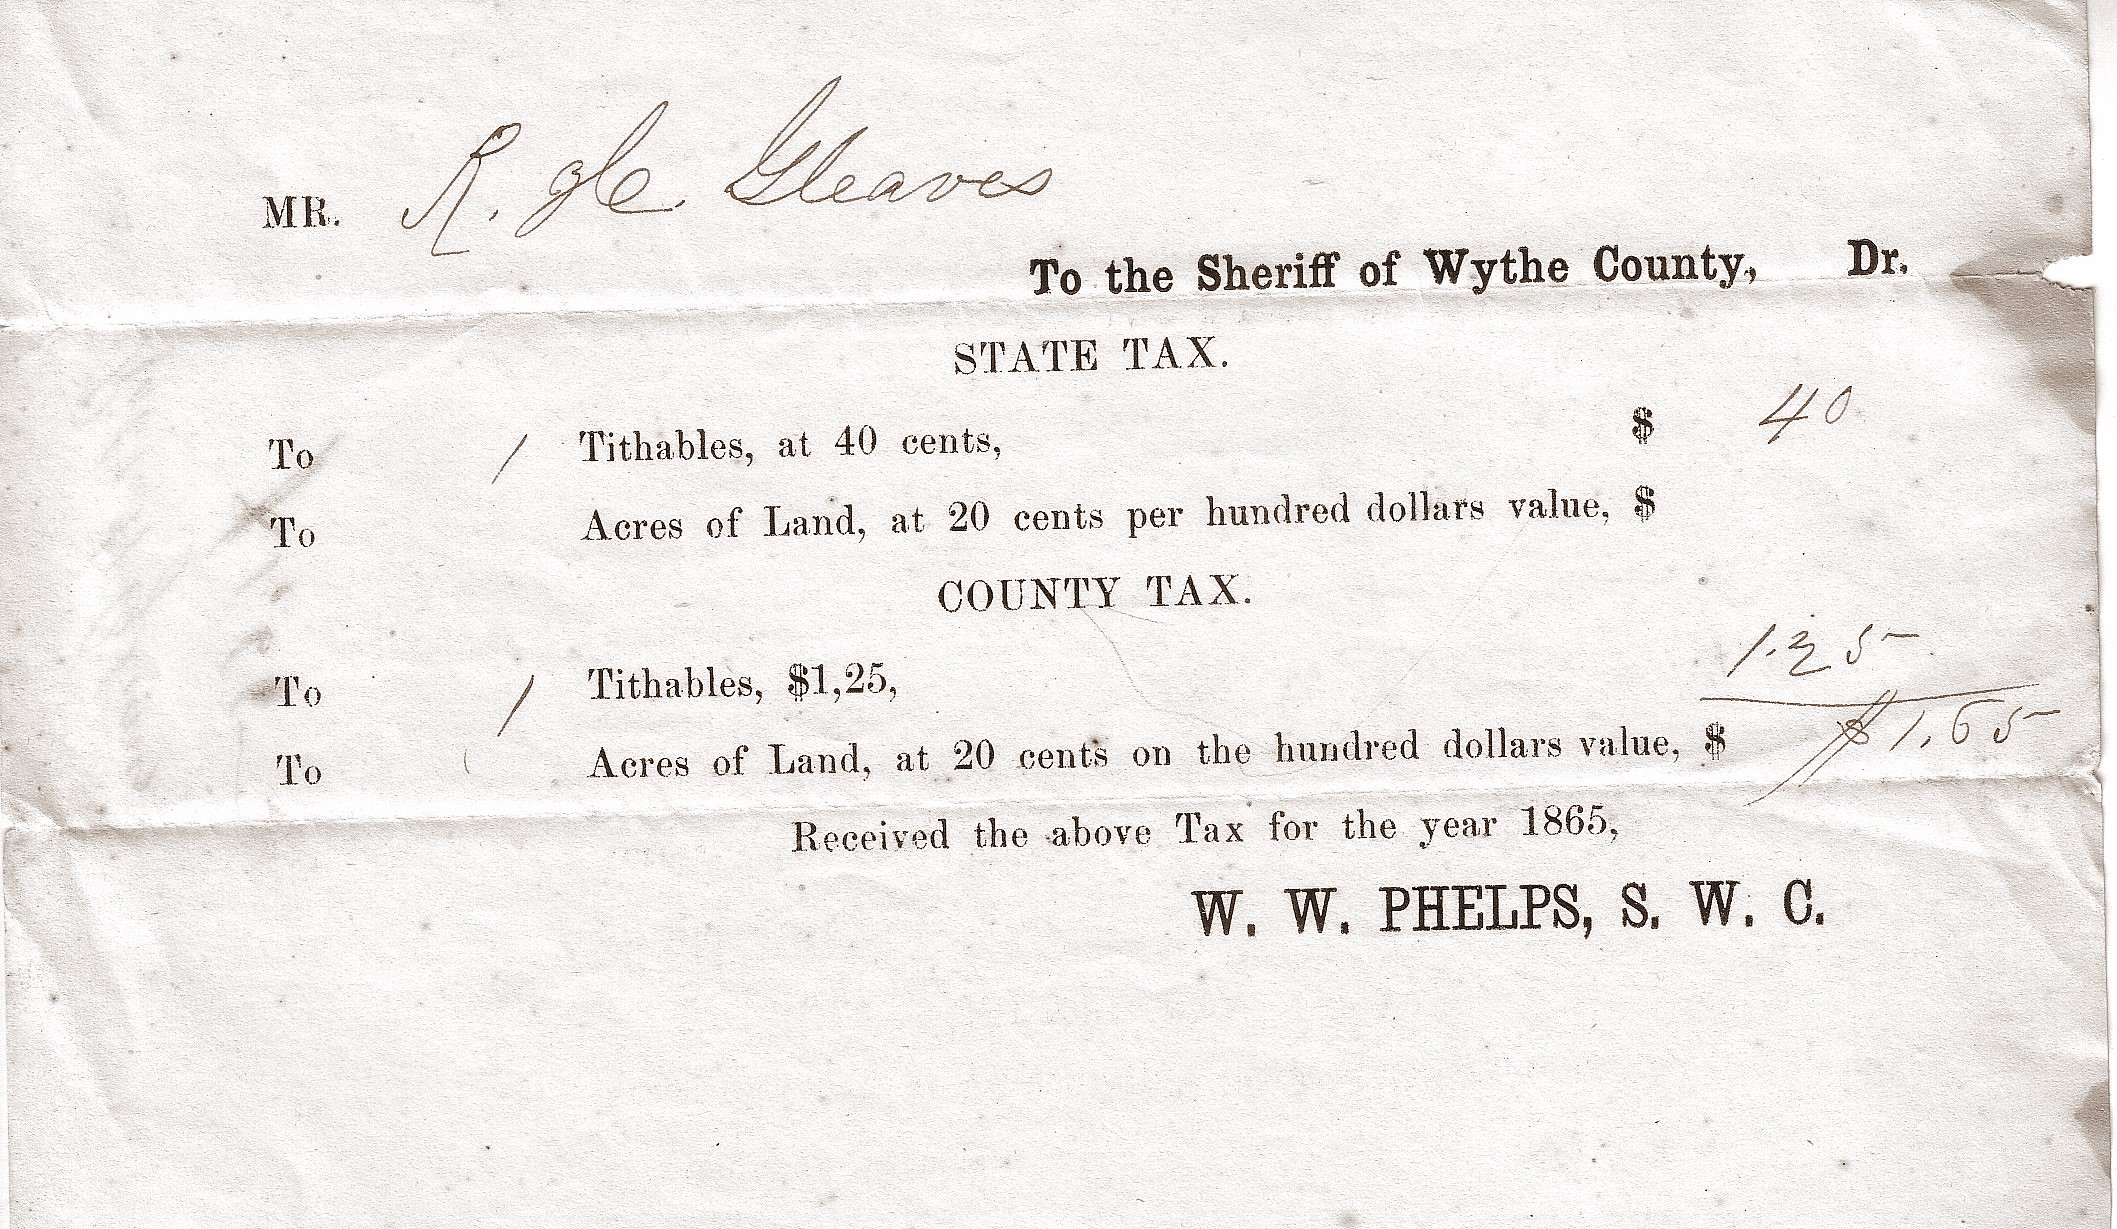 MR. R. Gleaves
To the Sheriff of Wythe County, Dr.
STATE TAX.
To 1 Tithables, at 40 cents, $ 40
To Acres of Land, at 20 cents per hundred dollars value, $
COUNTY TAX.
To 1 Tithables, $1,25, 1.25
To Acres of Land, at 20 cents on the hundred dollars value, $ $1,65
Received the above Tax for the year 1865,
W. W. PHELPS, S. W. C.